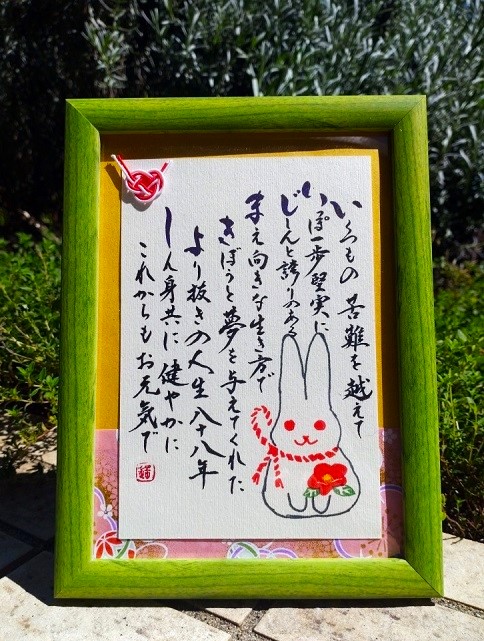 いくつもの 苦難を越えて
いっぽ一歩堅実に
じーんと誇りのある
まえ向きな生き方で
きぼうと夢を与えてくれた
より抜きの人生八十八年
しん身共に健やかに
これからもお元気で